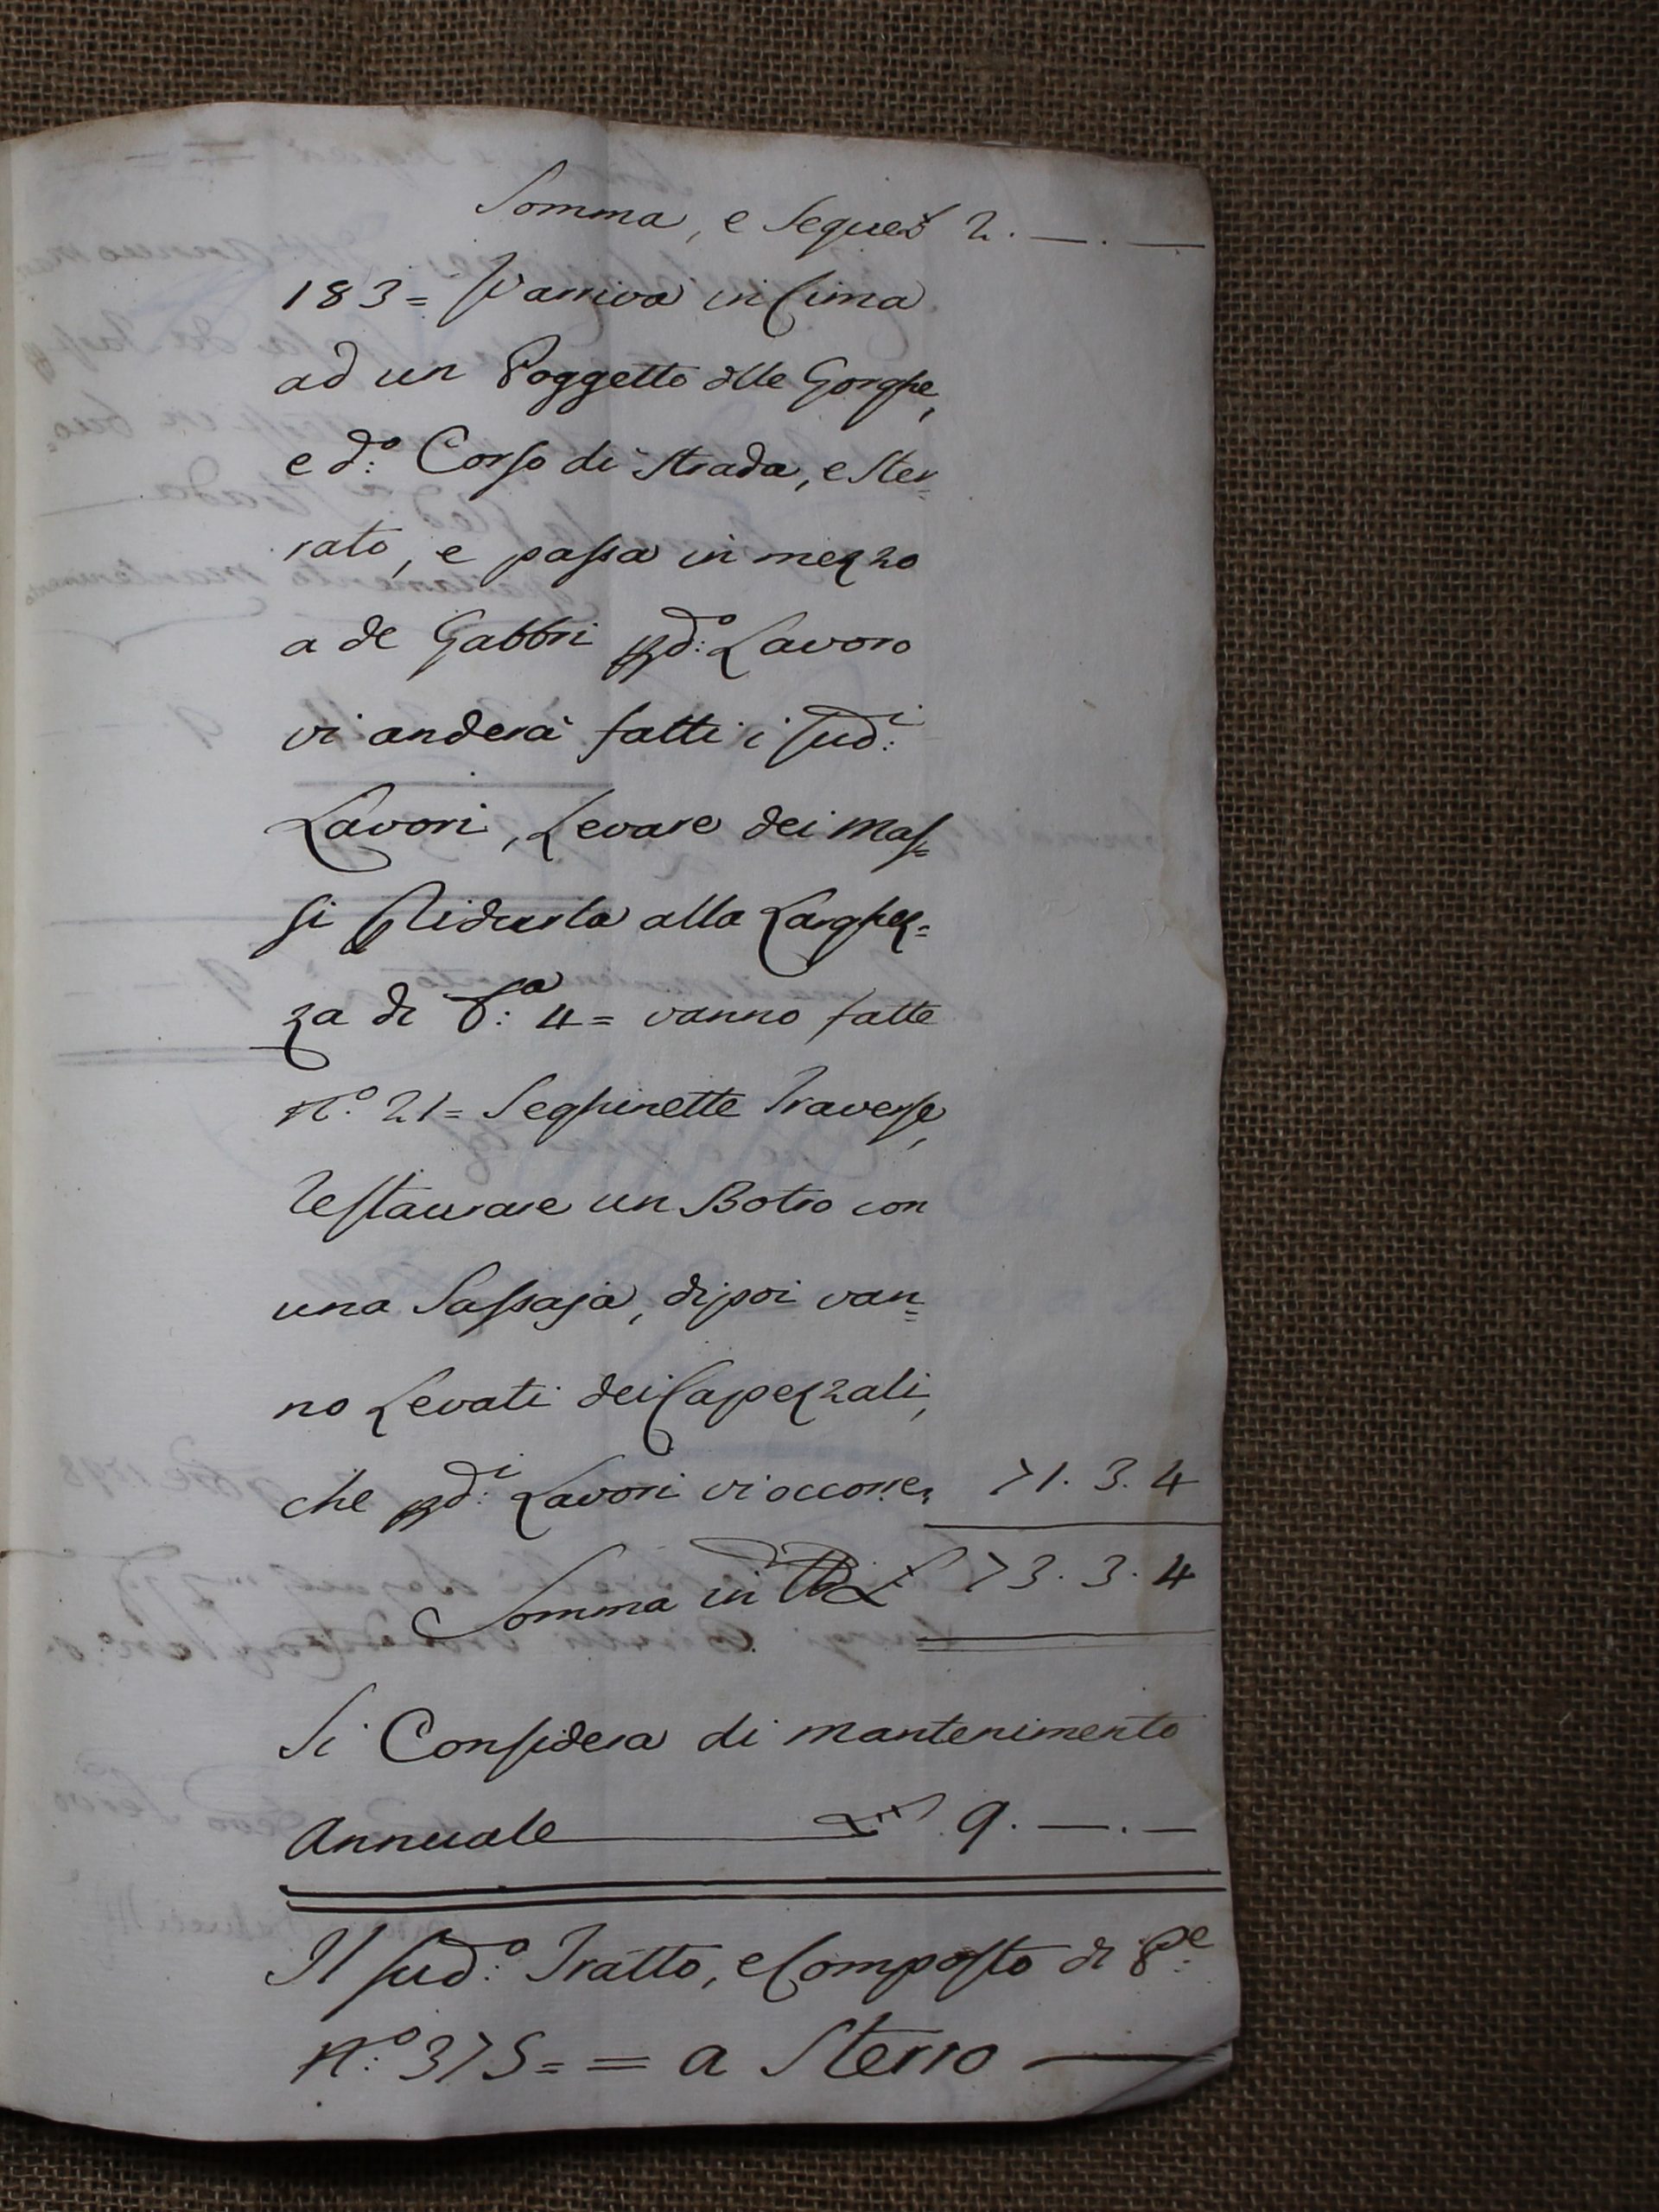 Somma, e Segue £ 2. — . —
183 = S'arriva in Cima
ad un Poggetto dlle Gorghe,
e d:º Corso di Strada, e Ster=
rato, e passa in mezzo
a de Gabbri pd:º Lavoro
vi anderà fatti i sud:i
Lavori, Levare dei Mas=
si Ridurla alla Larghez=
za di B:a 4 = vanno fatte
N:º 21 = Seghinette Traverse,
Restaurare un Botro con
una Sassaja, dipoi van=
no Levati dei Capezzali,
che pd:i Lavori vi occorre, 71. 3. 4
Somma in tt £ 73. 3. 4
Si Considera di mantenimento
Annuale £ 9. — . —
Il sud:º Tratto, e Composto di P:e
N:º 375 = = a Sterro —